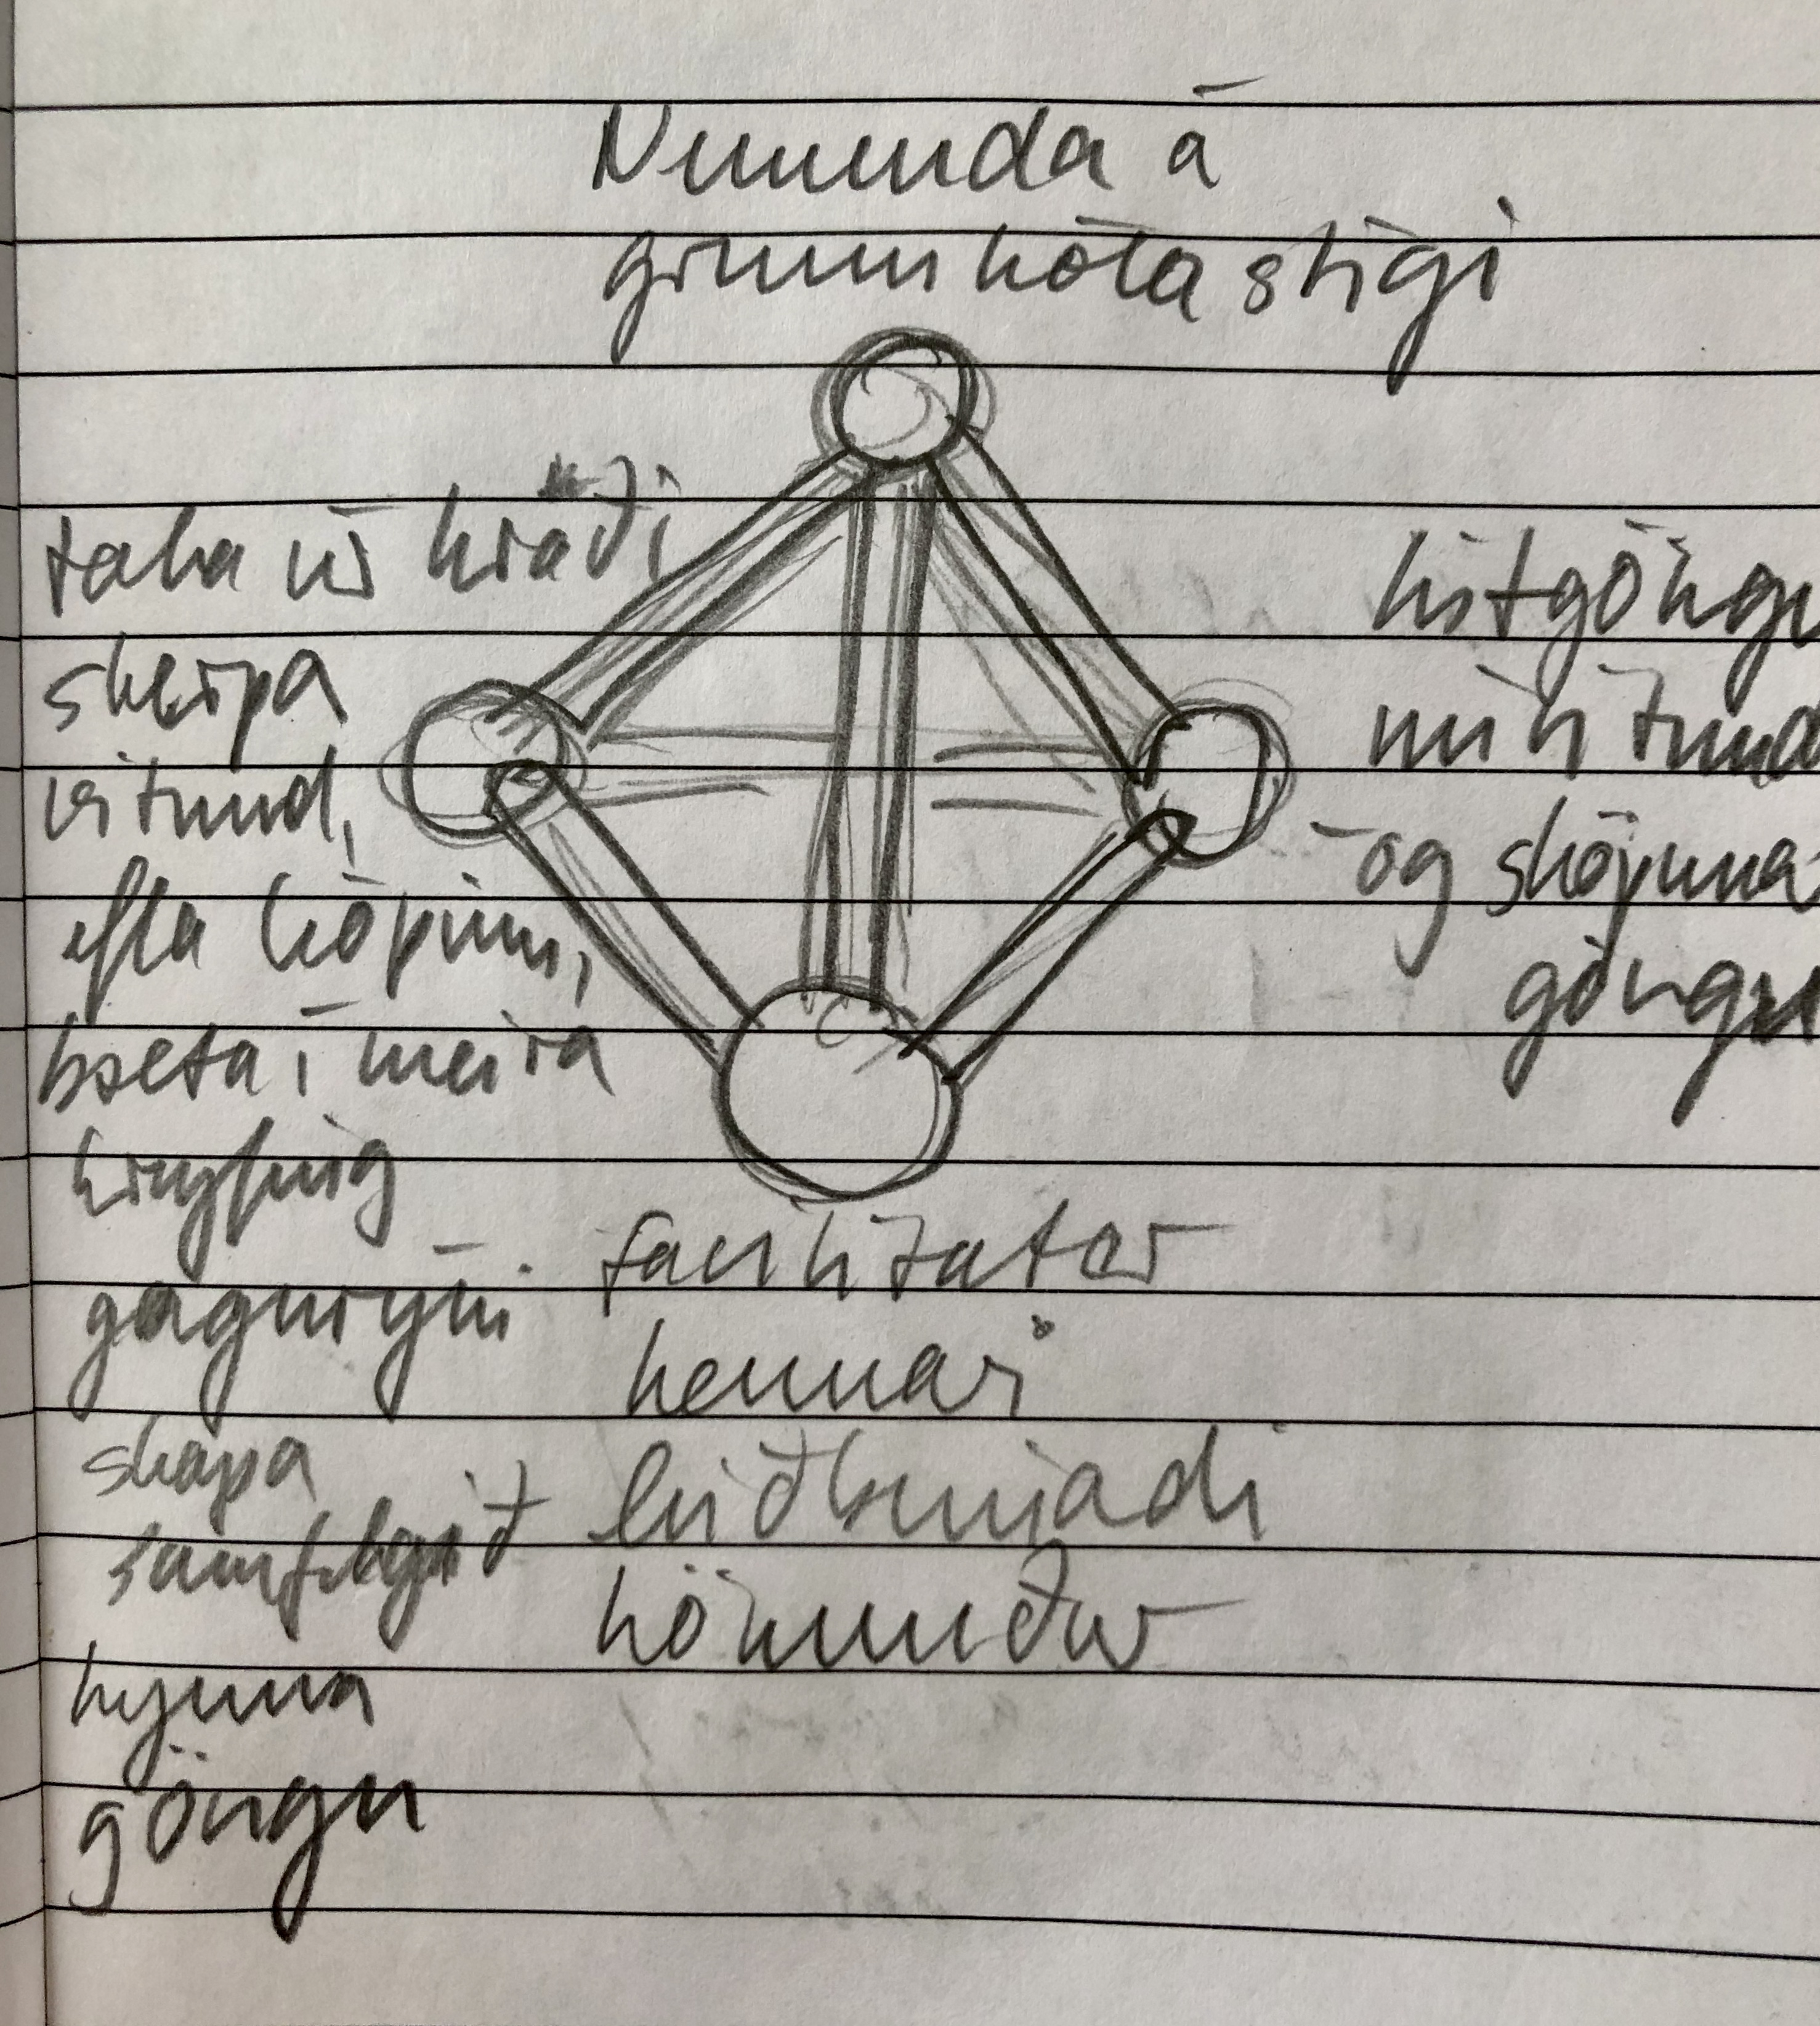 Nemenda á
grunnskólastigi
taka úr hraði
skerpa
vitund,
efla hópinn,
bæta í meira
gagnrýni
skapa
samfélagið
kynna
göngu
listgöngu
nú
og sköpuna
göngu
facilitator
kennari
leiðbeinandi
hönnuður